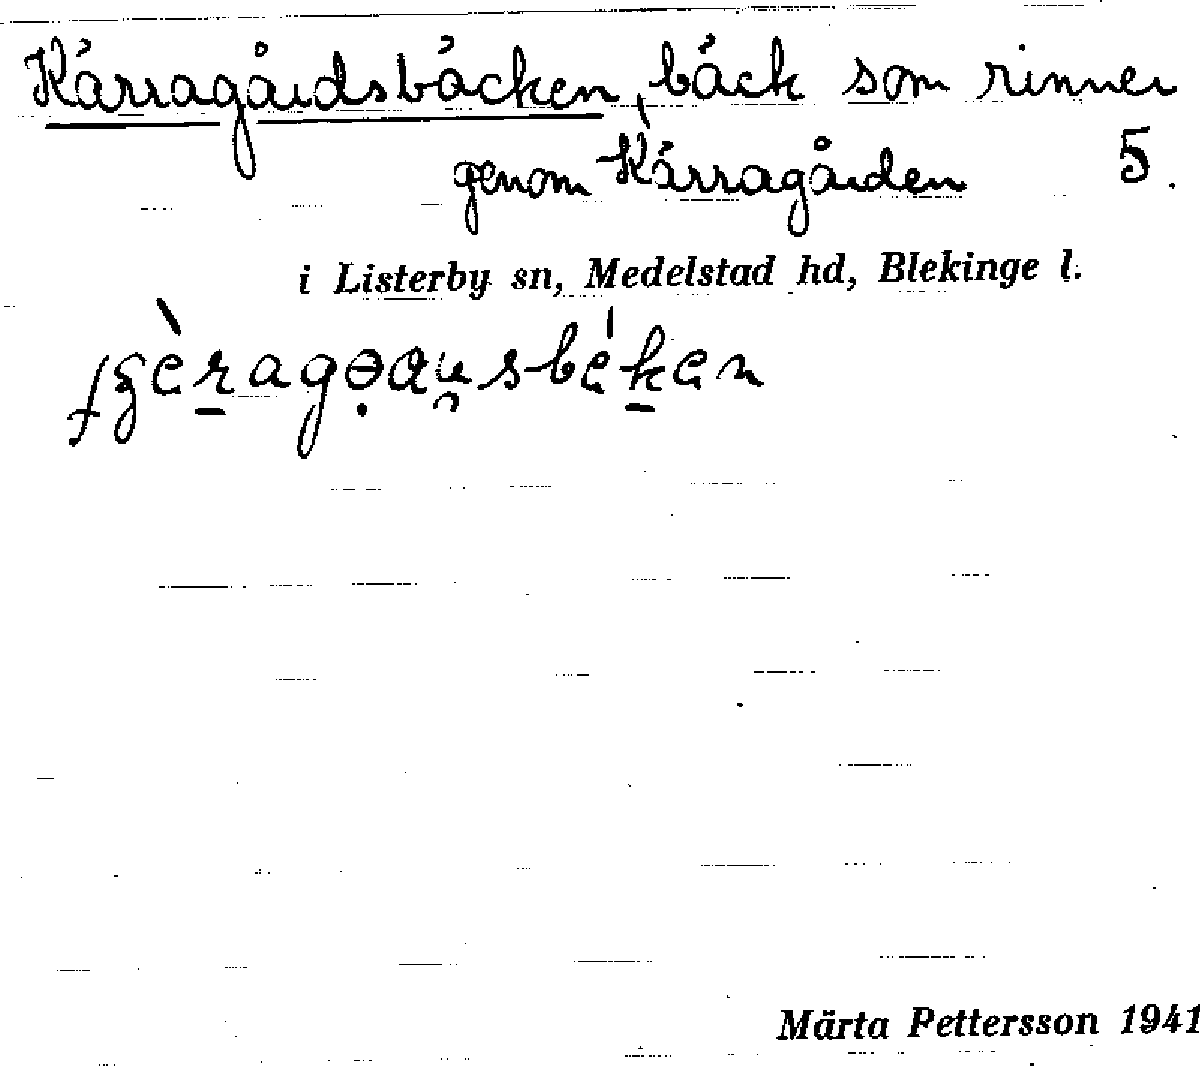 Kärragårdsbäcken, bäck som rinner
genom Kärragården 5.
i Listerby sn, Medelstad hd, Blekinge l.
Märta Pettersson 1941